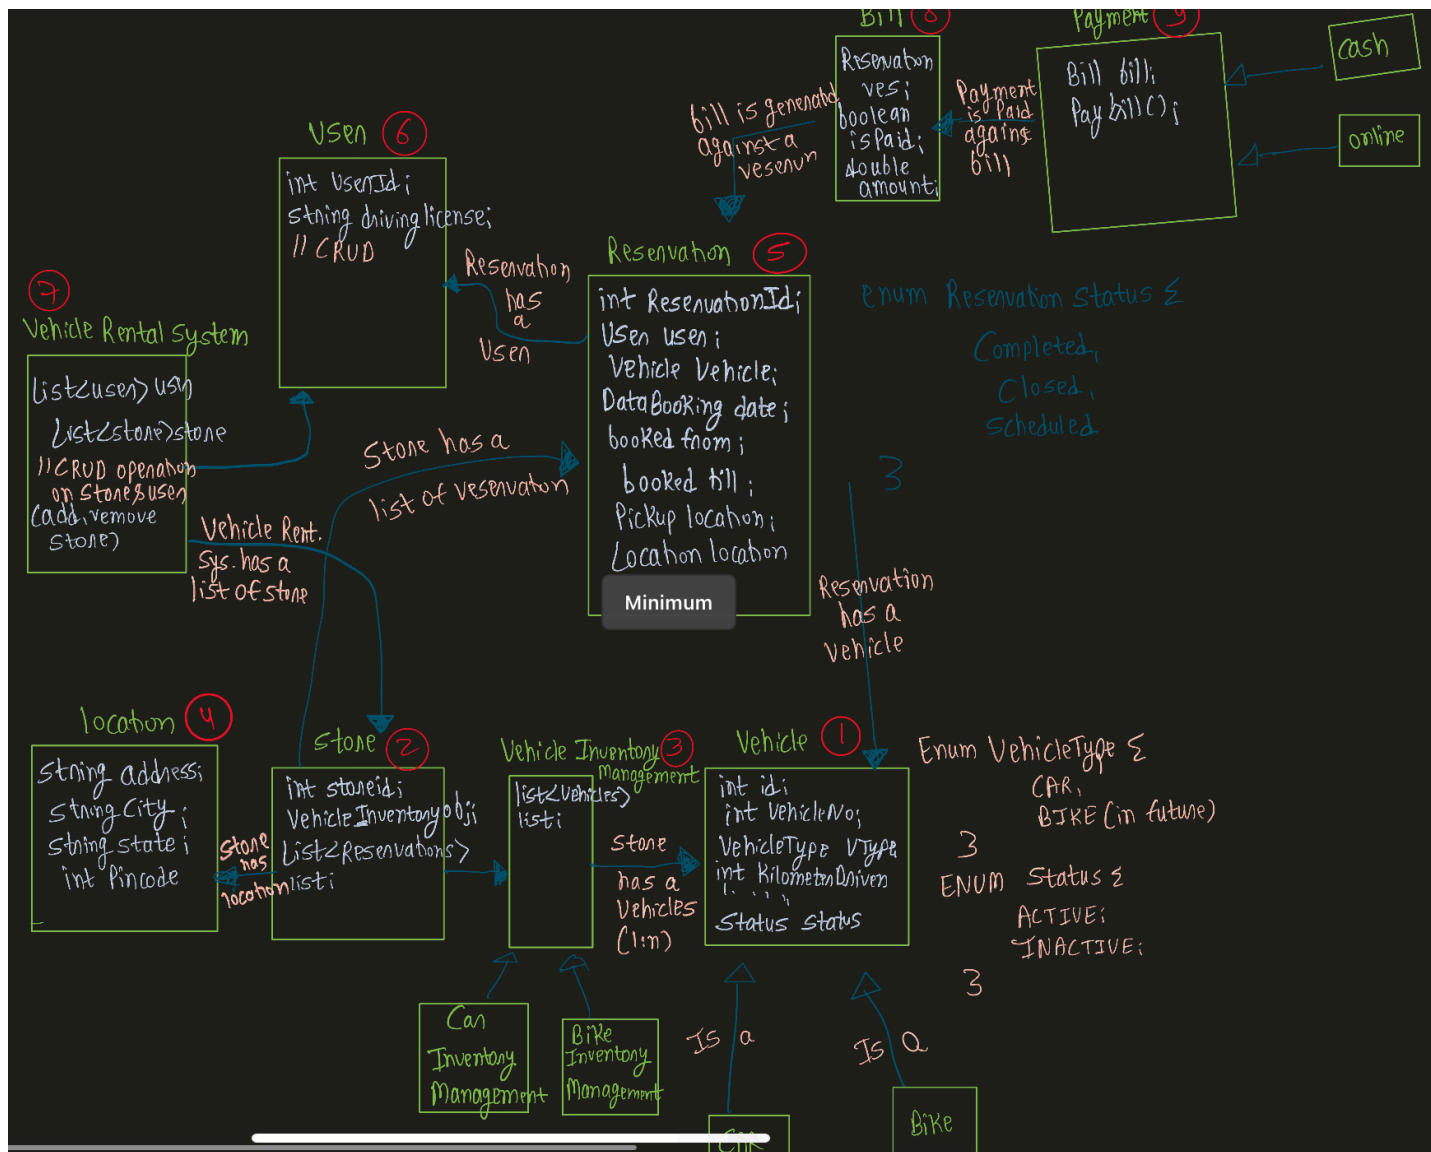 Bill 8
Reservation
res;
boolean
isPaid;
double
amount;
Payment 9
Bill bill;
Pay bill();
cash
online
Payment
is Paid
against
bill
bill is generated
against a
User 6
int UserId;
string driving license;
// CRUD
Reservation
has
a
User
Reservation 5
int ReservationId;
User user;
Vehicle Vehicle;
Data Booking date;
booked from;
booked till;
Pickup location;
Location location
Minimum
enum Reservation Status {
Completed,
Closed,
Scheduled
}
7
Vehicle Rental System
List<user> usr
List<store> store
// CRUD operation
on store & user
(add, remove
store)
Vehicle Rent.
Sys. has a
list of store
Store has a
list of reservation
Reservation
has a
vehicle
location 4
String address;
String City;
String state;
int Pincode
Store
has
location
Store 2
int storeid;
Vehicle Inventory obj;
List<Reservations>
list;
Vehicle Inventory 3
Management
list<Vehicles>
list;
Store
has a
Vehicles
(1:n)
Vehicle 1
int id;
int VehicleNo;
VehicleType VType
int KilometerDriven
Status Status
Enum VehicleType {
CAR,
BIKE (in future)
}
ENUM Status {
ACTIVE;
INACTIVE;
}
Car
Inventory
Management
Bike
Inventory
Management
Is a
Is a
CAR
Bike